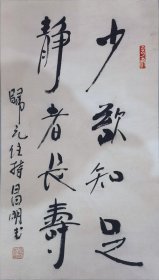 少欲知足
静者長壽
歸元住持昌明書